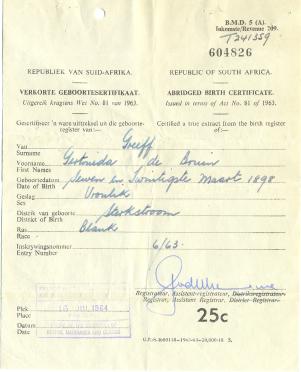 B.M.D. 5 (A).
Inkomste/Revenue 709.
T241359
604826
REPUBLIEK VAN SUID-AFRIKA. REPUBLIC OF SOUTH AFRICA.
VERKORTE GEBOORTESERTIFIKAAT. ABRIDGED BIRTH CERTIFICATE.
Uitgereik kragtens Wet No. 81 van 1963. Issued in terms of Act No. 81 of 1963.
Gesertifiseer 'n ware uittreksel uit die geboorte- Certified a true extract from the birth register
register van:- of:-
Van Greeff
Surname
Voorname Gertruida de Bruin
First Names
Geboortedatum Sewen en Twintigste Maart 1898
Date of Birth
Geslag Vroulik
Sex
Distrik van geboorte Sterkstroom
District of Birth
Ras Blank
Race
Inskrywingsnommer 6/63.
Entry Number
Registrateur, Assistent-registrateur, Distriksregistrateur.
Registrar, Assistant Registrar, District Registrar.
Plek
Place
25c
Datum
Date
1964